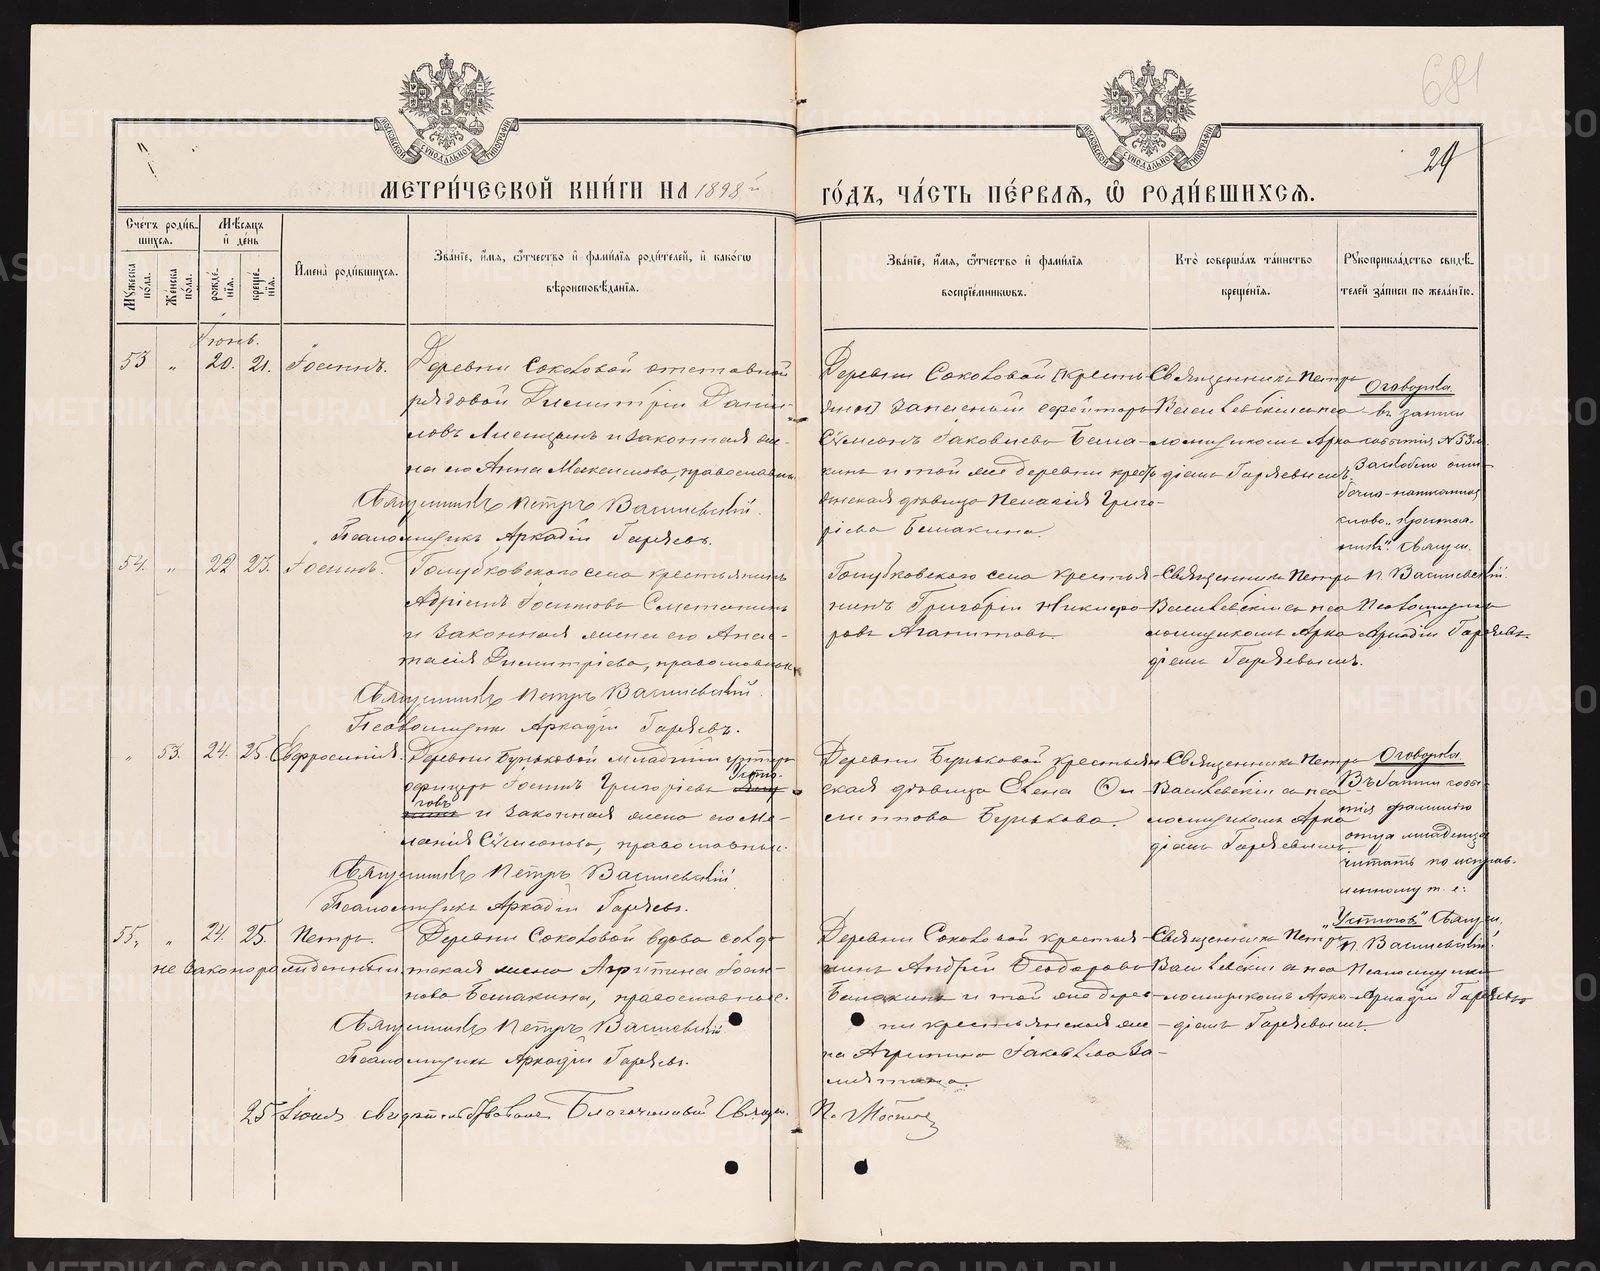 681
29
МЕТРИ́ЧЕСКОЙ КНИ́ГИ НА 1898й
ГО́ДЪ, ЧА́СТЬ ПЕ́РВАѦ, Ѿ РОДИ́ВШИХСѦ.
Сче́тъ роди́вшихсѧ.
Мꙋжеска по́ла.
Же́нска по́ла.
Мѣ́сѧцъ и҆ де́нь
рожде́нїѧ.
креще́нїѧ.
И҆мена̀ роди́вшихсѧ.
Зва́нїе, и҆́мѧ, ѻ҆́тчество и҆ фами́лїѧ роди́телей, и҆ како́гѡ
вѣроисповѣ́данїѧ.
Зва́нїе, и҆́мѧ, ѻ҆́тчество и҆ фами́лїѧ
воспрїе́мникѡвъ.
Кто̀ соверша́лъ та́инство
креще́нїѧ.
Рꙋкоприкла́дство свидѣ́-
телей за́писи по жела́нїю.
Іюнь.
53 „ 20. 21. Іосифъ.
Деревни Соколовой отставной
рядовой Димитрій Дани-
ловъ и законная же-
на его Анна Максимова, православн.
Священникъ Петръ Василевскій.
Псаломщикъ Аркадій Гаряевъ.
Деревни Соколовой [кресть-
янин] запасной ефрейторъ
Сѵмеонъ Іаковлевъ Бета-
кинъ и той же деревни кресть-
янская дѣвица Пелагія Григо-
ріева Бетакина.
Священникъ Петръ
Василевскій съ пса-
ломщикомъ Арка-
діемъ Гаряевымъ.
Оговорка
въ записи
событія № 53 м.
За скобою оши-
бочно написанное
слово „крестья-
нинъ“. Священ.
П. Василевскій.
Псаломщикъ
Аркадій Гаряевъ.
54. „ 22 23. Іосифъ.
Голубковскаго села крестьянинъ
Адріанъ Іосифовъ Сметанинъ
и законная жена его Анас-
тасія Димитріева, православные
Священникъ Петръ Василевскій.
Псаломщикъ Аркадій Гаряевъ.
Голубковскаго села крестья-
нинъ Григорій Никифо-
ровъ Агапитовъ.
Священникъ Петръ
Василевскій съ пса-
ломщикомъ Арка-
діемъ Гаряевымъ.
„ 53. 24. 25. Евфросинія.
Деревни Буньковой младшій унтеръ
офицеръ Іосифъ Григорьевъ Устю-
говъ и законная жена его Ме-
ланія Сѵмеонова, православные.
Священникъ Петръ Василевскій.
Псаломщикъ Аркадій Гаряевъ.
Деревни Буньковой крестьян-
ская дѣвица Елена Фи-
липпова Бунькова.
Священникъ Петръ
Василевскій съ пса-
ломщикомъ Арка-
діемъ Гаряевымъ
Оговорка
Въ записи собы-
тія фамилію
отца младенца
читать по исправ-
ленному т. е.
„Устюговъ“ Священ.
П. Василевскій.
Псаломщикъ
Аркадій Гаряевъ
55, „ 24. 25. Петръ.
не законорожденный.
Деревни Соколовой вдова солда-
тская жена Агрипина Іоан-
нова Бетакина, православная.
Священникъ Петръ Василевскій.
Псаломщикъ Аркадій Гаряевъ.
Деревни Соколовой крестья-
нинъ Андрей Ѳеодоровъ
Бетакинъ и той же дерев-
ни крестьянская же-
на Агрипина Іаковлева За-
мятина.
Священникъ Петръ
Василевскій съ пса-
ломщикомъ Арка-
діемъ Гаряевымъ.
25 Іюня свидѣтельствовалъ Благочинный Священ. П.